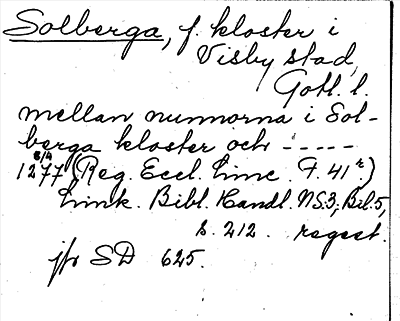 Solberga, f. kloster i
Visby stad,
Gotl. l.
mellan nunnorna i Sol-
berga kloster och -----
1277 8/4 (Reg. Eccl. Linc. F. 41 r.)
Link. Bibl. Handl. NS.3, Bil.5,
s. 212. regest.
jfr SD 625.